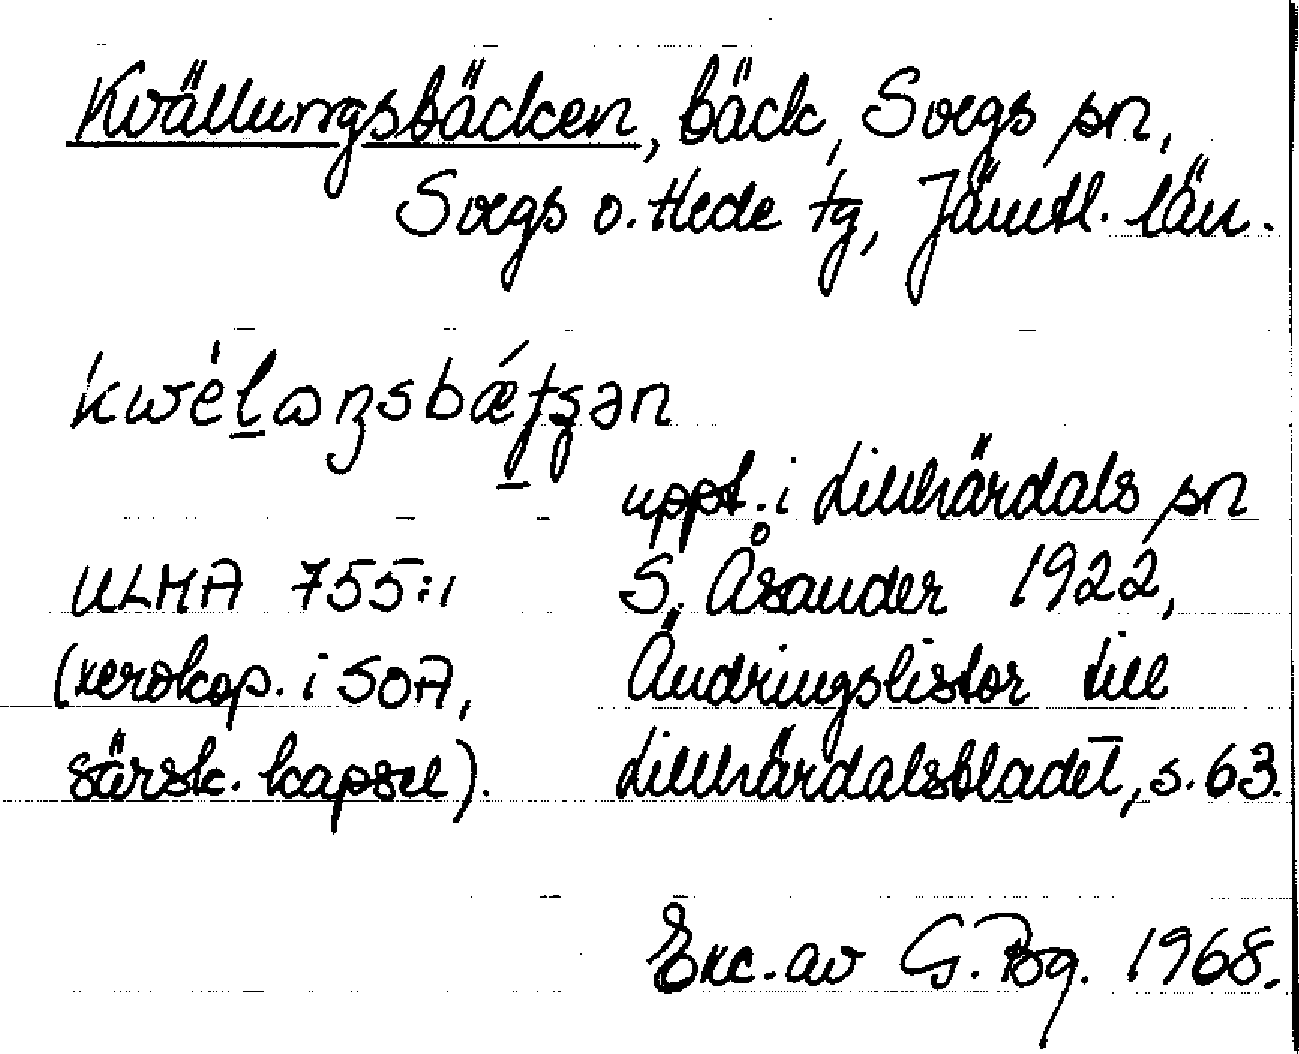 Kvällungsbäcken, bäck, Svegs sn,
Svegs o. Hede tg, Jämtl. län.
uppt. i Lillhärdals sn
ULMA 755:1 S. Åsander 1922,
(xerokop. i SOA, Ändringslistor till
särsk. kapsel). Lillhärdalsbladet, s. 63.
Exc. av G. Bg. 1968.